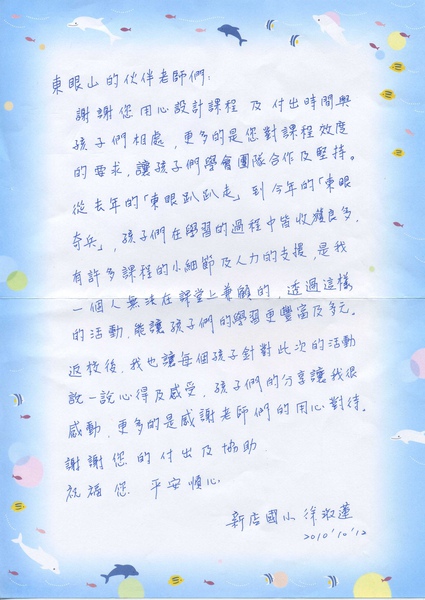 東眼山的伙伴老師們:
謝謝您用心設計課程及付出時間與
孩子們相處,更多的是您對課程效度
的要求,讓孩子們學會團隊合作及堅持。
從去年的「東眼趴趴走」到今年的「東眼
奇兵」,孩子們在學習的過程中皆收獲良多,
有許多課程的小細節及人力的支援,是我
一個人無法在課堂上兼顧的,透過這樣
的活動,能讓孩子們的學習更豐富及多元。
返校後,我也讓每個孩子針對此次的活動
說一說心得及感受,孩子們的分享讓我很
感動,更多的是感謝老師們的用心對待。
謝謝您的付出及協助.
祝福您 平安順心
新店國小 徐淑蓮
2010'10'12